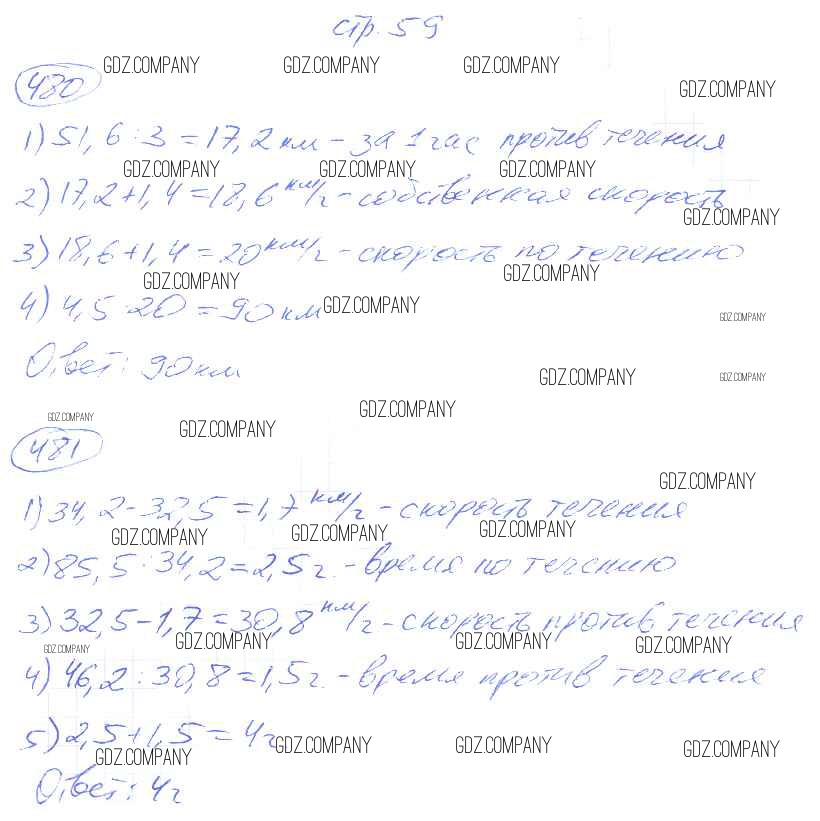 стр. 59
GDZ.COMPANY GDZ.COMPANY GDZ.COMPANY
480
GDZ.COMPANY
1) 51,6 : 3 = 17,2 км - за 1 час против течения
GDZ.COMPANY GDZ.COMPANY GDZ.COMPANY
2) 17,2 + 1,4 = 18,6 км/ч - собственная скорость
GDZ.COMPANY
3) 18,6 + 1,4 = 20 км/ч - скорость по течению
GDZ.COMPANY GDZ.COMPANY
4) 4,5 · 20 = 90 км
GDZ.COMPANY GDZ.COMPANY
Ответ: 90 км
GDZ.COMPANY GDZ.COMPANY
GDZ.COMPANY GDZ.COMPANY GDZ.COMPANY
481
GDZ.COMPANY
1) 34,2 - 32,5 = 1,7 км/ч - скорость течения
GDZ.COMPANY GDZ.COMPANY GDZ.COMPANY
2) 85,5 : 34,2 = 2,5 ч. - время по течению
3) 32,5 - 1,7 = 30,8 км/ч - скорость против течения
GDZ.COMPANY GDZ.COMPANY GDZ.COMPANY GDZ.COMPANY
4) 46,2 : 30,8 = 1,5 ч. - время против течения
5) 2,5 + 1,5 = 4 ч
GDZ.COMPANY GDZ.COMPANY GDZ.COMPANY GDZ.COMPANY
Ответ: 4 ч